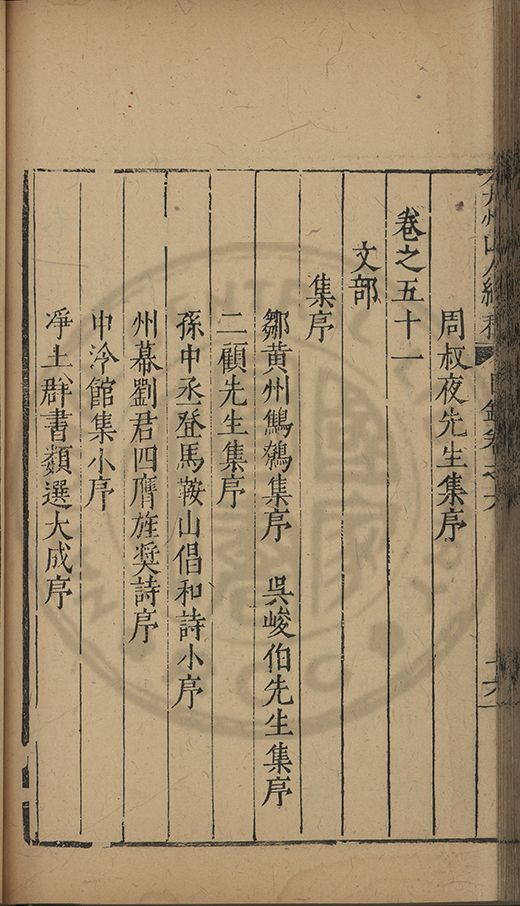 弇州山人續稿 目錄卷之六
周叔夜先生集序
卷之五十一
文部
集序
鄒黃州鷦鷯集序 吳峻伯先生集序
二顧先生集序
孫中丞登馬鞍山倡和詩小序
州幕劉君四膺旌奬詩序
中泠館集小序
凈土群書類選大成序